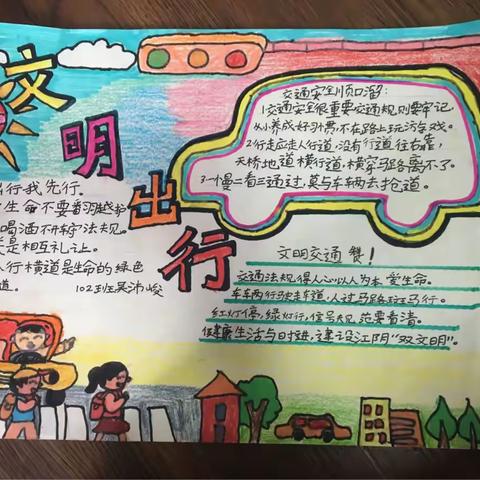 文明出行
交通安全顺口溜:
1.交通安全很重要交通规则要牢记,
从小养成好习惯,不在路上玩游戏。
2.行走应走人行道,没有行道往右靠,
天桥地道横行道,横穿马路离不了。
3.一慢二看三通过,莫与车辆去抢道。
出行我先行。
生命不要翻越护
喝酒不开车守法规。
是相互礼让。
人行横道是生命的绿色
道。
102班吴沛峻
文明交通赞!
交通法规得人心以人为本爱生命。
车车两行驶走车道,人过马路斑马行。
红灯停,绿灯行,信号规范要看清。
健康生活与日增,建设江阴“双文明”。